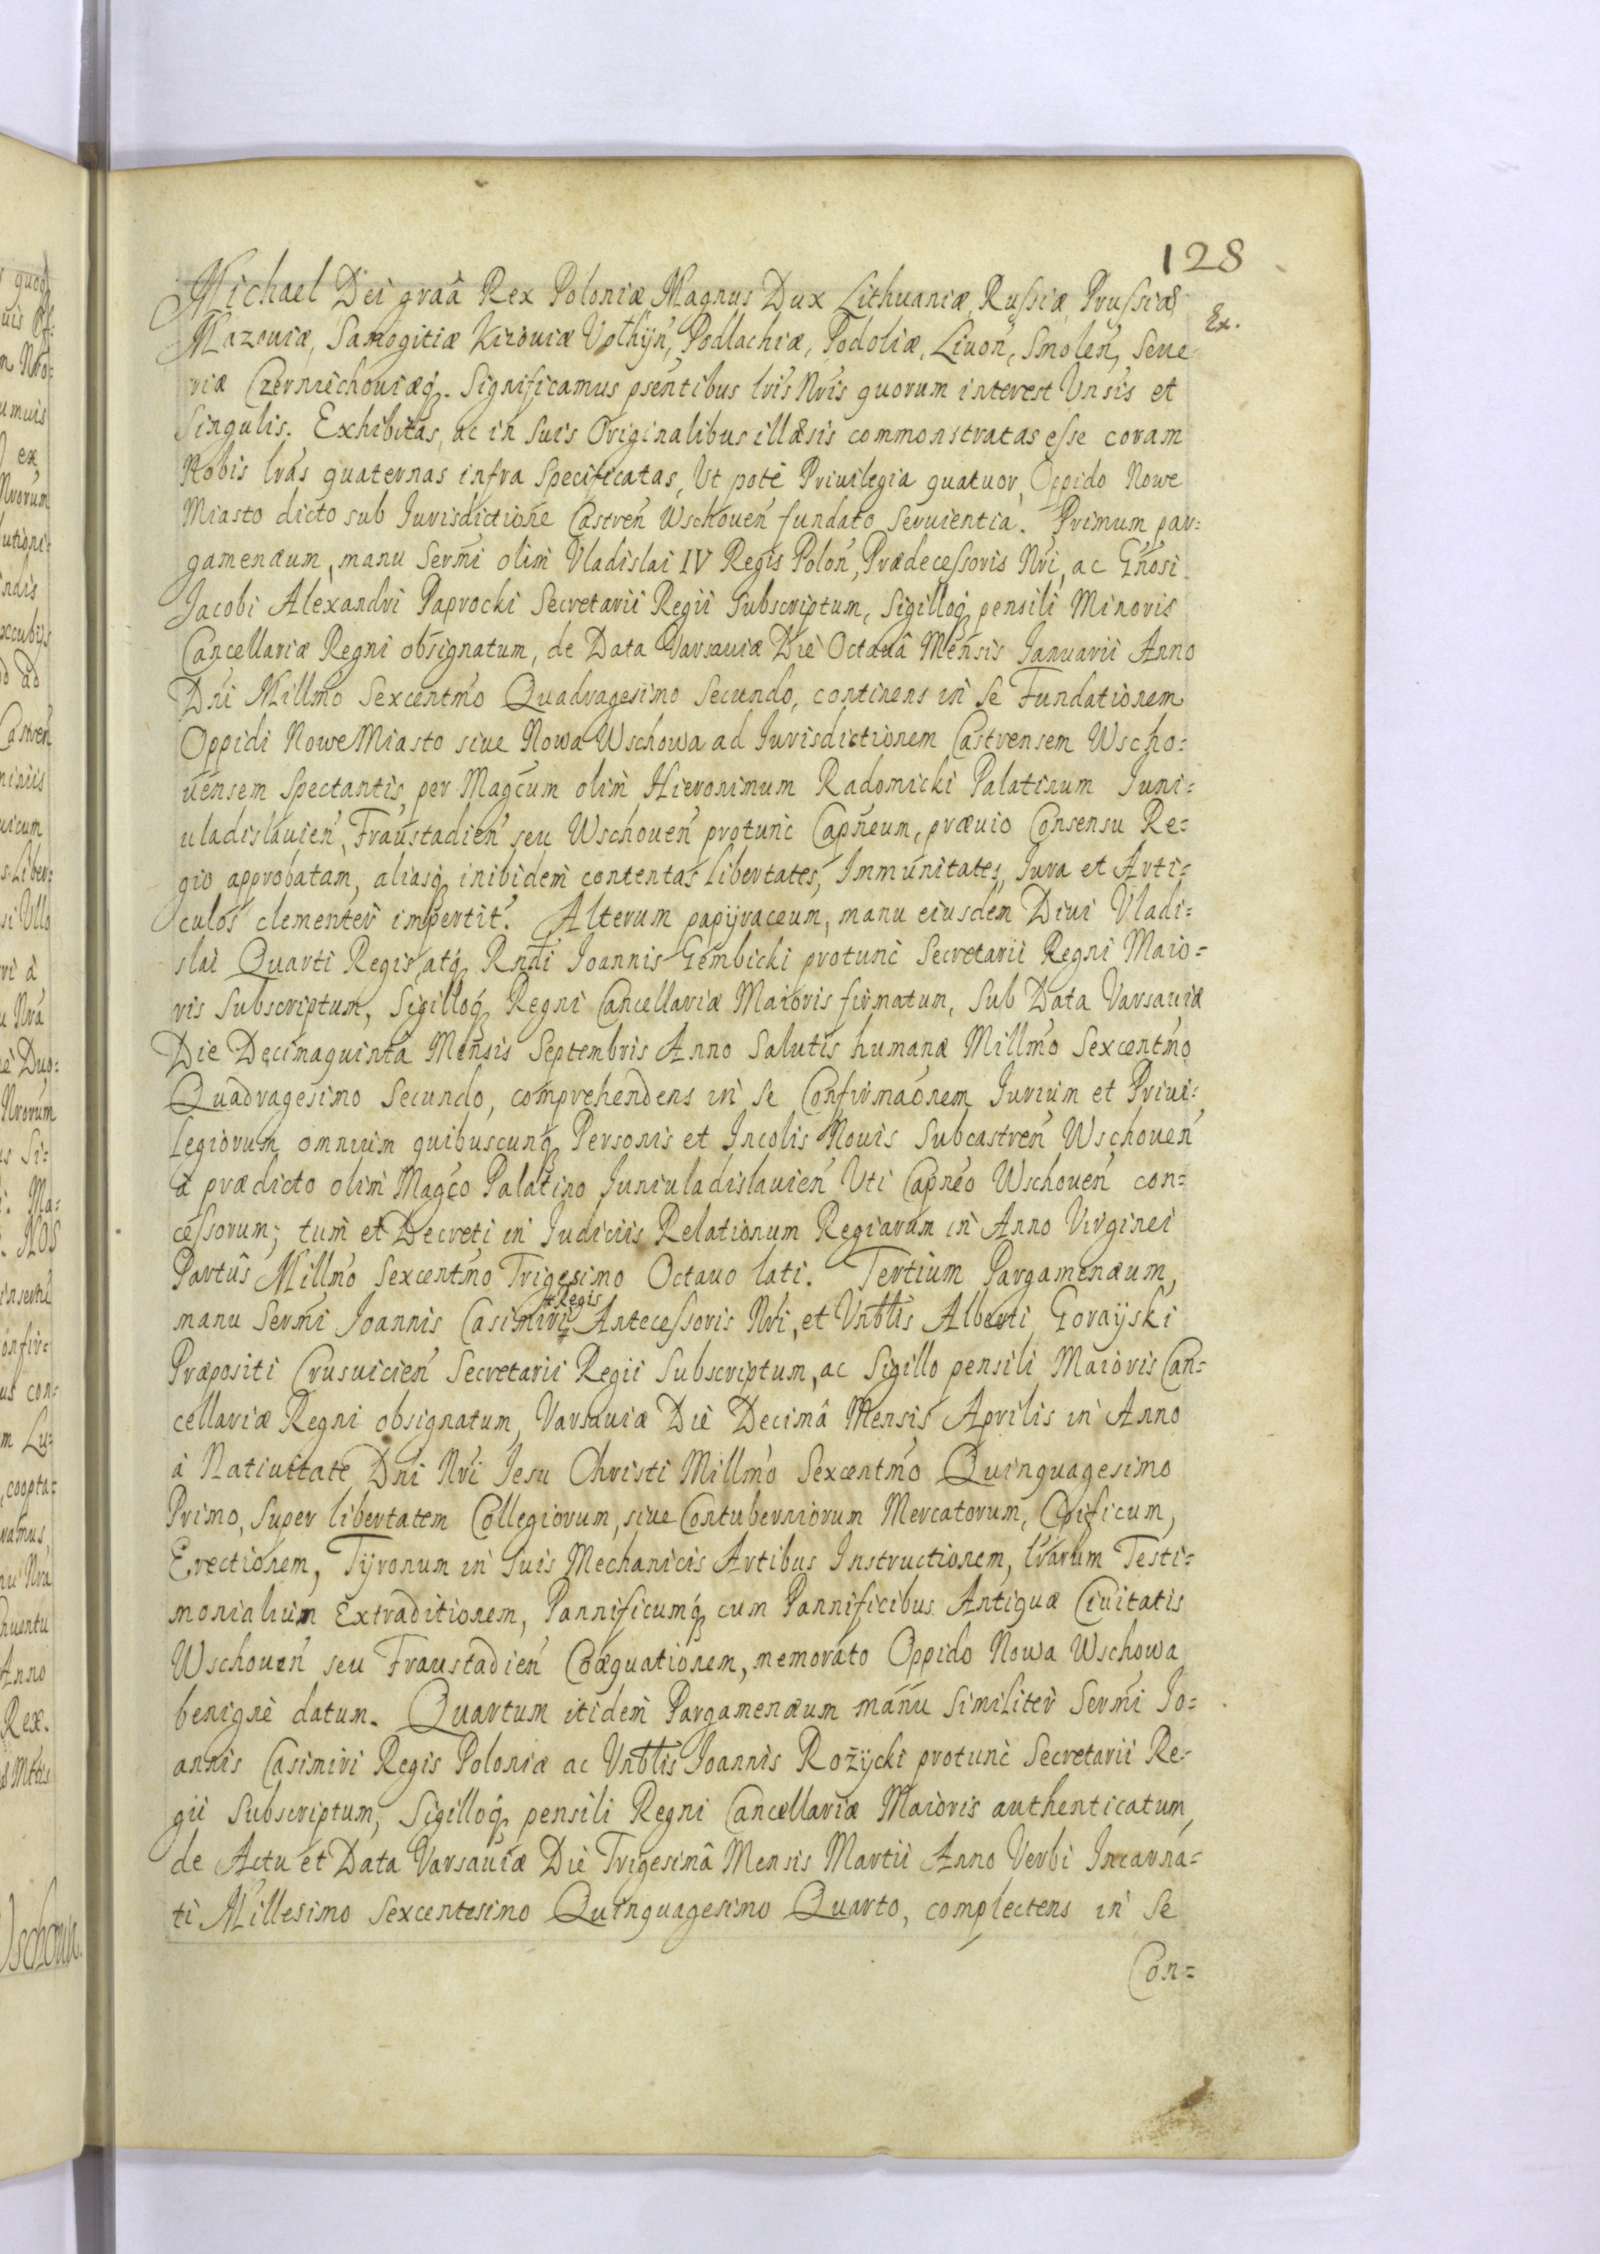 128
Ex.
Michael Dei graâ Rex Poloniæ Magnus Dux Lithuaniæ, Russiæ, Prussiæ
Mazouiæ, Samogitiæ Kiiouiæ Volhÿn̄, Podlachiæ, Podoliæ, Liuon̄, Smolen̄, Seue-
riæ Czerniechouiæq̨. Significamus pñtibus lris Nris quorum interest Vnsis et
Singulis. Exhibitas, ac in suis Originalibus illæsis commonstratas esse coram
Nobis lras quaternas infra Specificatas, Ut potè Priuilegia quatuor, Oppido Nowe
Miasto dicto sub Iurisdictione Castren̄ Wschouen̄ fundato seruientia. Primum par=
gamenæum, manu Sermi olim Vladislai IV Regis Polon̄, Prædecessoris Nri, ac Gnosi
Jacobi Alexandri Paprocki Secretarii Regii Subscriptum, Sigilloq̨ pensili Minoris
Cancellariæ Regni obsignatum, de Data Varsauiæ Die Octauâ Mensis Ianuarii Anno
Dni Millmo Sexcentmo Quadragesimo Secundo, continens in se Fundationem
Oppidi Nowe Miasto siue Nowa Wschowa ad Iurisdictionem Castrensem Wscho=
uensem Spectantis, per Magcum olim Hieronimum Radomicki Palatinum Iuni=
uladislauien̄, Fraustadien̄ seu Wschouen̄ protunc Capneum, præuio Consensu Re=
gio approbatam, aliasq̨ inibidem contentas libertates, Immunitates, Iura et Arti=
culos clementer impertit. Alterum papÿraceum, manu eiusdem Diui Vladi=
slai Quarti Regis atq̨ Rndi Joannis Gembicki protunc Secretarii Regni Maio=
ris Subscriptum, Sigilloq̨ Regni Cancellariæ Maioris firmatum, Sub Data Varsauiæ
Die Decimaquinta Mensis Septembris Anno Salutis humanæ Millmo Sexcentmo
Quadragesimo Secundo, comprehendens in se Confirmaonem Iurium et Priui=
legiorum omnium quibuscunq̨ Personis et Incolis Nouis Subcastren̄ Wschouen̄
à prædicto olim Magco Palatino Iuniuladislauien̄ Uti Capneo Wschouen̄ con=
cessorum; tum et Decreti in Iudiciis Relationum Regiarum in Anno Virginei
Partûs Millmo Sexcentmo Trigesimo Octauo lati. Tertium Pargamenæum,
+Regis
manu Sermi Joannis Casimiri+ Antecessoris Nri, et Vnbtlis Alberti Gorayski
Præpositi Crusuicien̄ Secretarii Regii Subscriptum, ac Sigillo pensili Maioris Can=
cellariæ Regni obsignatum, Varsauiæ Die Decimâ Mensis Aprilis in Anno
à Natiuitate Dni Nri Jesu Christi Millmo Sexcentmo Quinquagesimo
Primo, Super libertatem Collegiorum, siue Contuberniorum Mercatorum, Opificum,
Erectionem, Tÿronum in suis Mechanicis Artibus Instructionem, lrarum Testi=
monialium Extraditionem, Pannificumq̨ cum Pannificibus Antiquæ Ciuitatis
Wschouen̄ seu Fraustadien̄ Coæquationem, memorato Oppido Nowa Wschowa
benignè datum. Quartum itidem Pargamenæum manu similiter Sermi Jo=
annis Casimiri Regis Poloniæ ac Vnbtlis Joannis Rożÿcki protunc Secretarii Re=
gii Subscriptum, Sigilloq̨ pensili Regni Cancellariæ Maioris authenticatum,
de Actu et Data Varsauiæ Die Trigesimâ Mensis Martii Anno Verbi Incarna=
ti Millesimo Sexcentesimo Quinquagesimo Quarto, complectens in se
Con=